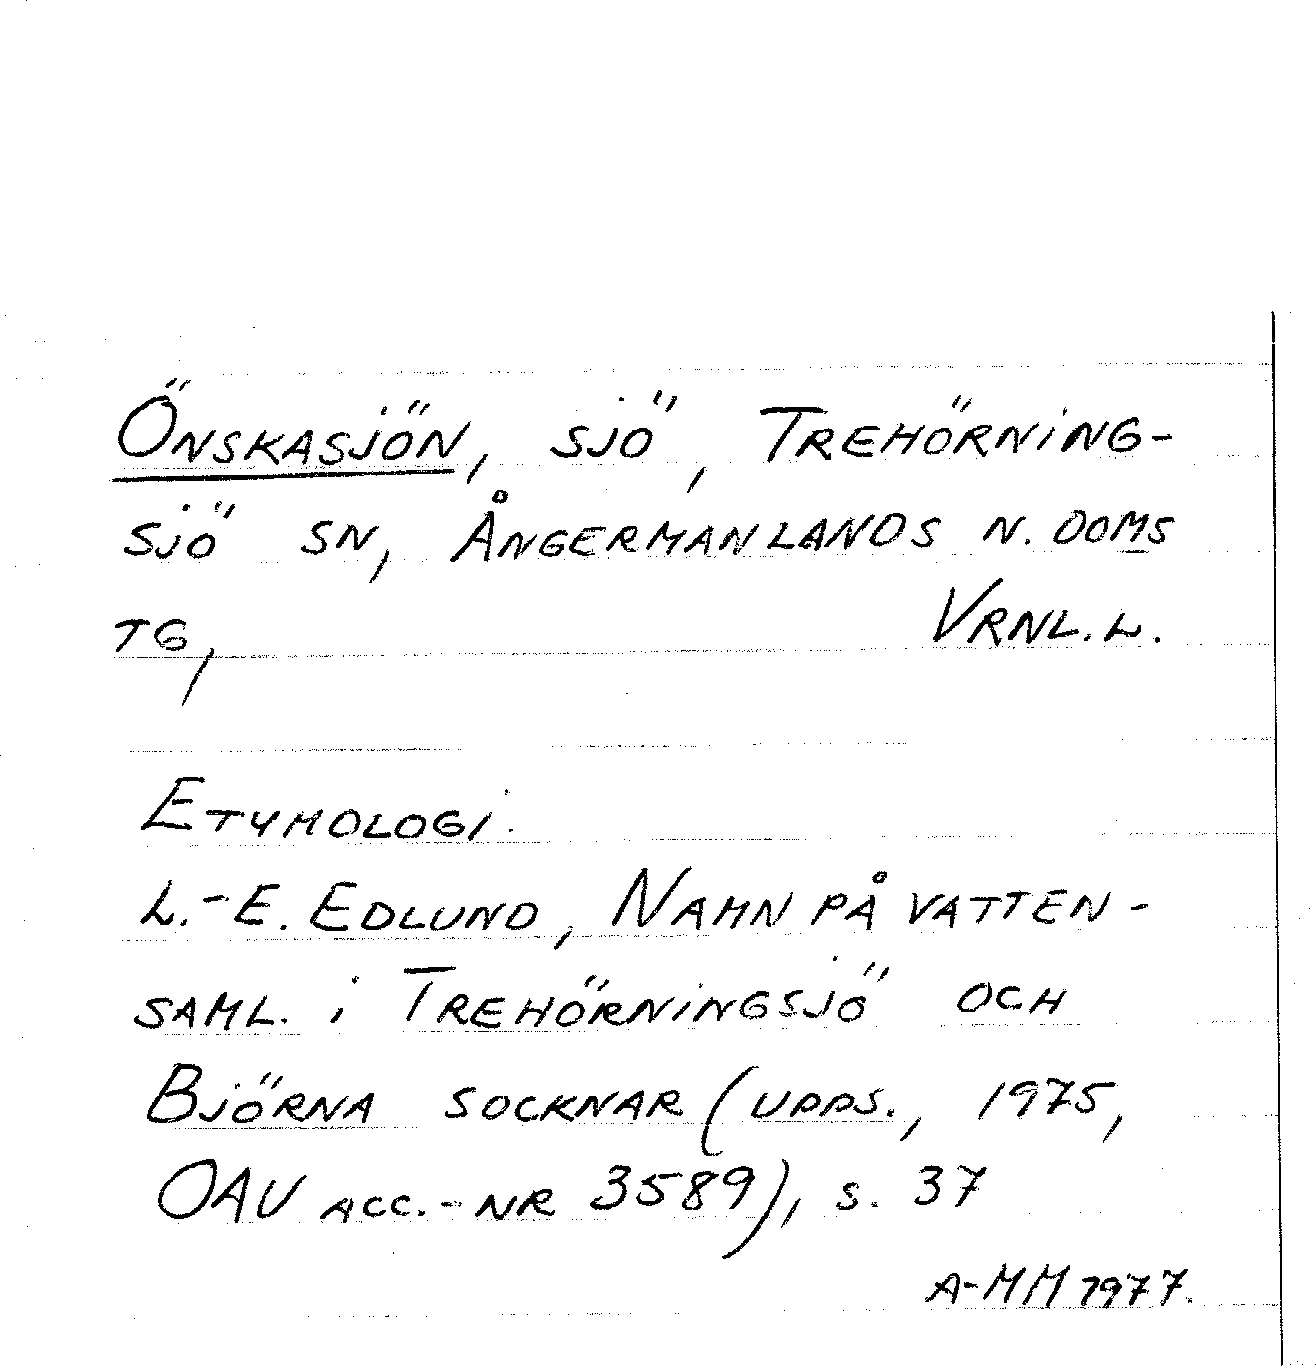 Önskasjön, sjö, Trehörning-
sjö sn, Ångermanlands n. doms
tg, Vrnl. L.
Etymologi.
L.-E. Edlund, Namn på vatten-
saml. i Trehörningsjö och
Björna socknar (upps., 1975,
OAU acc.-nr 3589), s. 37
A-MM 1977.